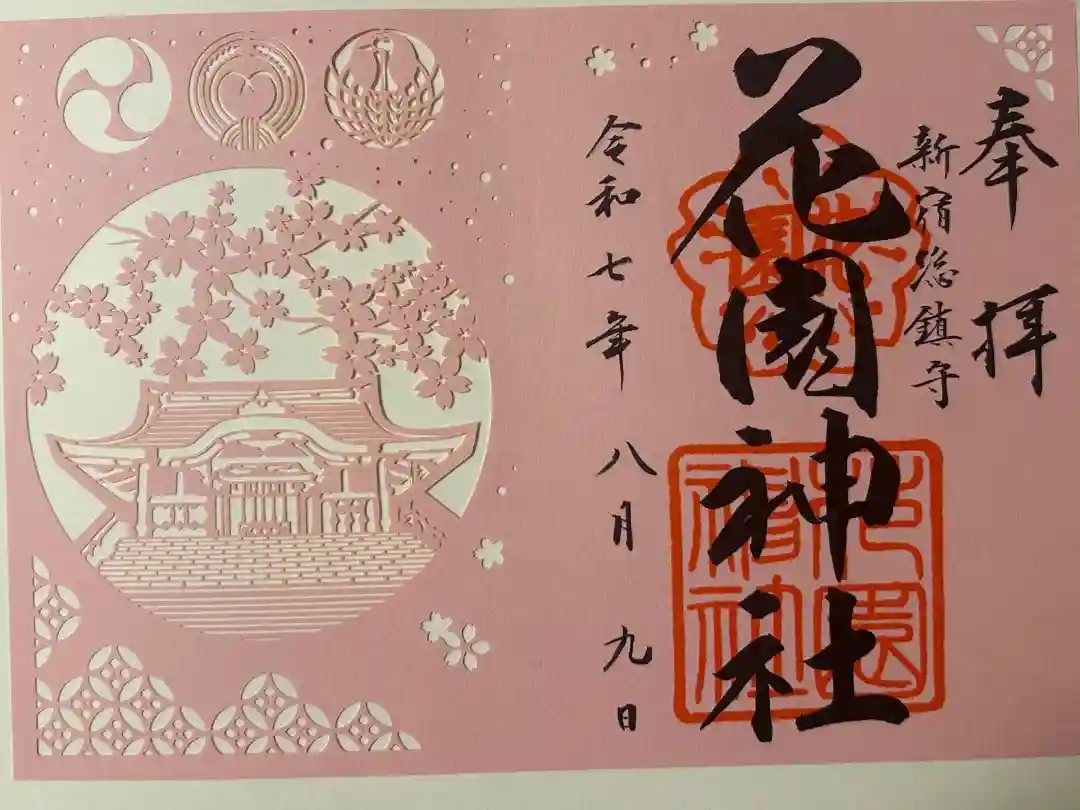 奉拝
新宿総鎮守
花園神社
令和七年八月九日
花園神社